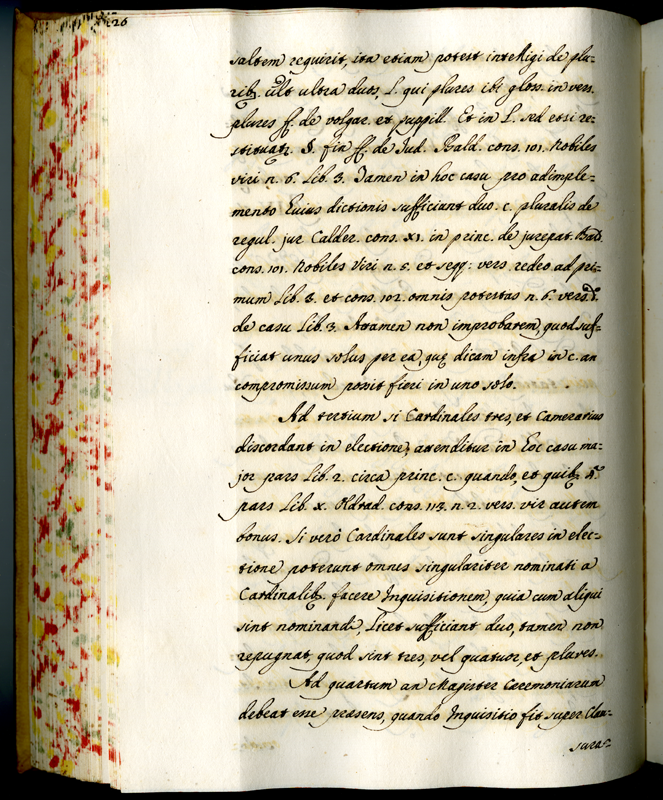 26
saltem requirit, ita etiam potest intelligi de plu-
rib. ult ultra duos, L. qui plures ibi glos. in vers.
plures ff. de volgar. et puppill. Et in L. sed etsi re-
stituatr. §. fin ff. de Jud. Bald. cons. 101. Nobiles
viri n. 6. Lib. 3. Tamen in hoc casu pro adimple-
mento huius dictionis sufficiant duo. c. pluralis de
regul. jur Calder. cons. XI. in princ. de jurepat. Bald.
cons. 101. Nobiles Viri n. 5. et seqq: vers. redeo ad pri-
mum Lib. 3. et cons. 102. omnis potestas n. 6. vers.
de casu Lib. 3. Attamen non improbarem, quod suf-
ficiat unus solus per ea, quę dicam infra in c. an
compromissum possit fieri in uno solo.
Ad tertium si Cardinales tres, et Camerarius
discordant in electione, attenditur in hoc casu ma-
jor pars Lib. 2. circa princ. c. quando, et quib.
pars Lib. X. Oldrad. cons. 113. n. 2. vers. vir autem
bonus. Si verò Cardinales sunt singulares in elec-
tione poterunt omnes singulariter nominati a
Cardinalib. facere Inquisitionem, quia cum aliqui
sint nominandi, licet sufficiant duo, tamen non
repugnat, quod sint tres, vel quatuor, et plures.
Ad quartum an Magister Ceremoniarum
debeat esse praesens, quando Inquisitio fit super Clau-
suras